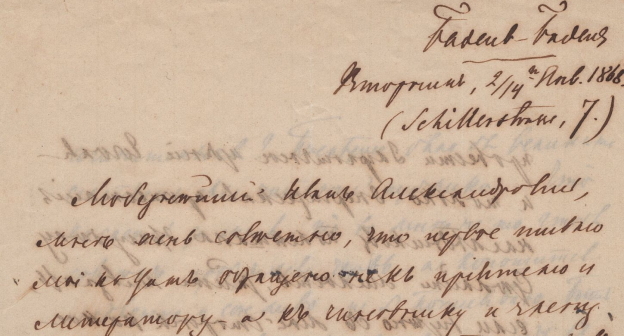 Баденъ-Баденъ
Вторникъ, 2/14го Янв. 1868.
(Schillerstrasse, 7.)
Любезнѣйшій Иванъ Александровичъ,
мнѣ очень совѣстно, что первое письмо
мое къ Вамъ обращено не къ пріятелю и
литератору а къ чиновнику и члену